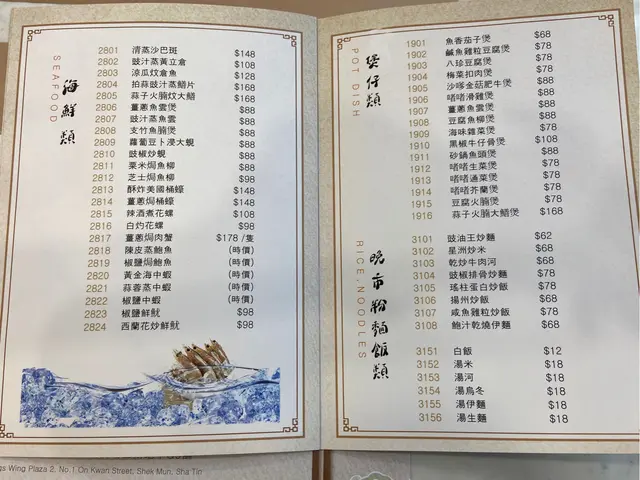 海鮮類
SEAFOOD
2801 清蒸沙巴斑 $148
2802 豉汁蒸黃立倉 $108
2803 涼瓜炆倉魚 $128
2804 拍蒜豉汁蒸鱔片 $168
2805 蒜子火腩炆大鱔 $168
2806 薑蔥魚雲煲 $88
2807 豉汁蒸魚雲 $88
2808 支竹魚腩煲 $88
2809 蘿蔔豆卜浸大蜆 $88
2810 豉椒炒蜆 $88
2811 粟米焗魚柳 $88
2812 芝士焗魚柳 $98
2813 酥炸美國桶蠔 $148
2814 薑蔥焗桶蠔 $148
2815 辣酒煮花螺 $108
2816 白灼花螺 $98
2817 薑蔥焗肉蟹 $178 /隻
2818 陳皮蒸鮑魚 (時價)
2819 椒鹽焗鮑魚 (時價)
2820 黃金海中蝦 (時價)
2821 蒜蓉蒸中蝦 (時價)
2822 椒鹽中蝦 (時價)
2823 椒鹽鮮魷 $98
2824 西蘭花炒鮮魷 $98
煲仔類
POT DISH
1901 魚香茄子煲 $68
1902 鹹魚雞粒豆腐煲 $78
1903 八珍豆腐煲 $78
1904 梅菜扣肉煲 $78
1905 沙嗲金菇肥牛煲 $88
1906 啫啫滑雞煲 $88
1907 薑蔥魚雲煲 $88
1908 豆腐魚柳煲 $88
1909 海味雜菜煲 $78
1910 黑椒牛仔骨煲 $108
1911 砂鍋魚頭煲 $88
1912 啫啫生菜煲 $78
1913 啫啫通菜煲 $78
1914 啫啫芥蘭煲 $78
1915 豆腐火腩煲 $78
1916 蒜子火腩大鱔煲 $168
晚市粉麵飯類
RICE,NOODLES
3101 豉油王炒麵 $62
3102 星洲炒米 $68
3103 乾炒牛肉河 $68
3104 豉椒排骨炒麵 $78
3105 瑤柱蛋白炒飯 $78
3106 揚州炒飯 $68
3107 咸魚雞粒炒飯 $78
3108 鮑汁乾燒伊麵 $68
3151 白飯 $12
3152 湯米 $18
3153 湯河 $18
3154 湯烏冬 $18
3155 湯伊麵 $18
3156 湯生麵 $18
gs Wing Plaza 2, No.1 On Kwan Street, Shek Mun, Sha Tin